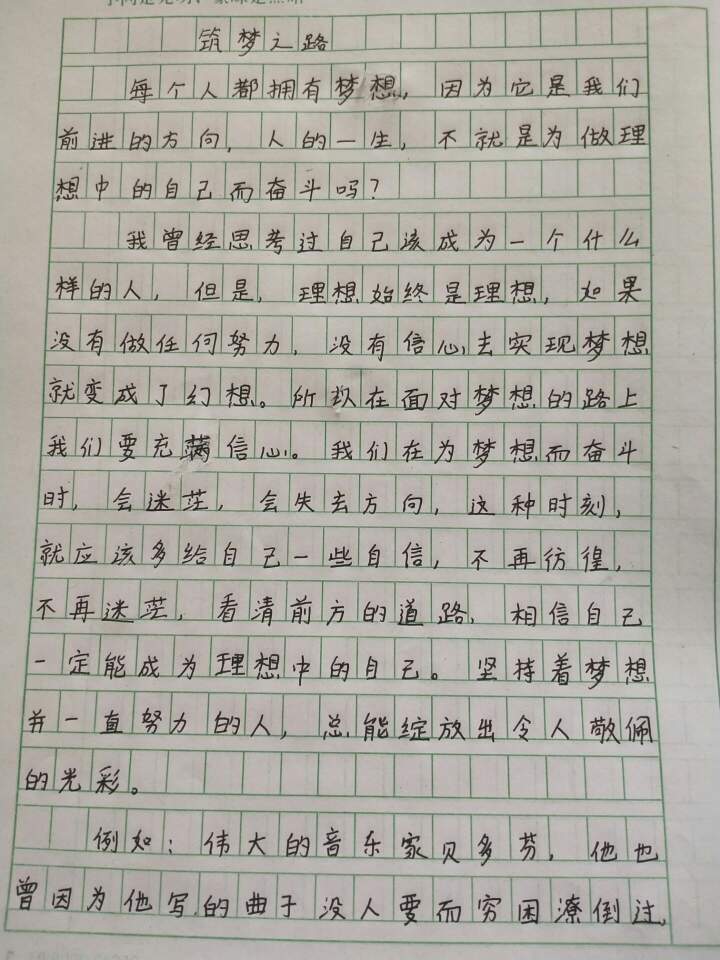 筑梦之路
每个人都拥有梦想，因为它是我们
前进的方向，人的一生，不就是为做理
想中的自己而奋斗吗？
我曾经思考过自己该成为一个什么
样的人，但是，理想始终是理想，如果
没有做任何努力，没有信心去实现梦想
就变成了幻想。所以在面对梦想的路上
我们要充满信心。我们在为梦想而奋斗
时，会迷茫，会失去方向，这种时刻，
就应该多给自己一些自信，不再彷徨，
不再迷茫，看清前方的道路，相信自己
一定能成为理想中的自己。坚持着梦想
并一直努力的人，总能绽放出令人敬佩
的光彩。
例如：伟大的音乐家贝多芬，他也
曾因为他写的曲子没人要而穷困潦倒过，